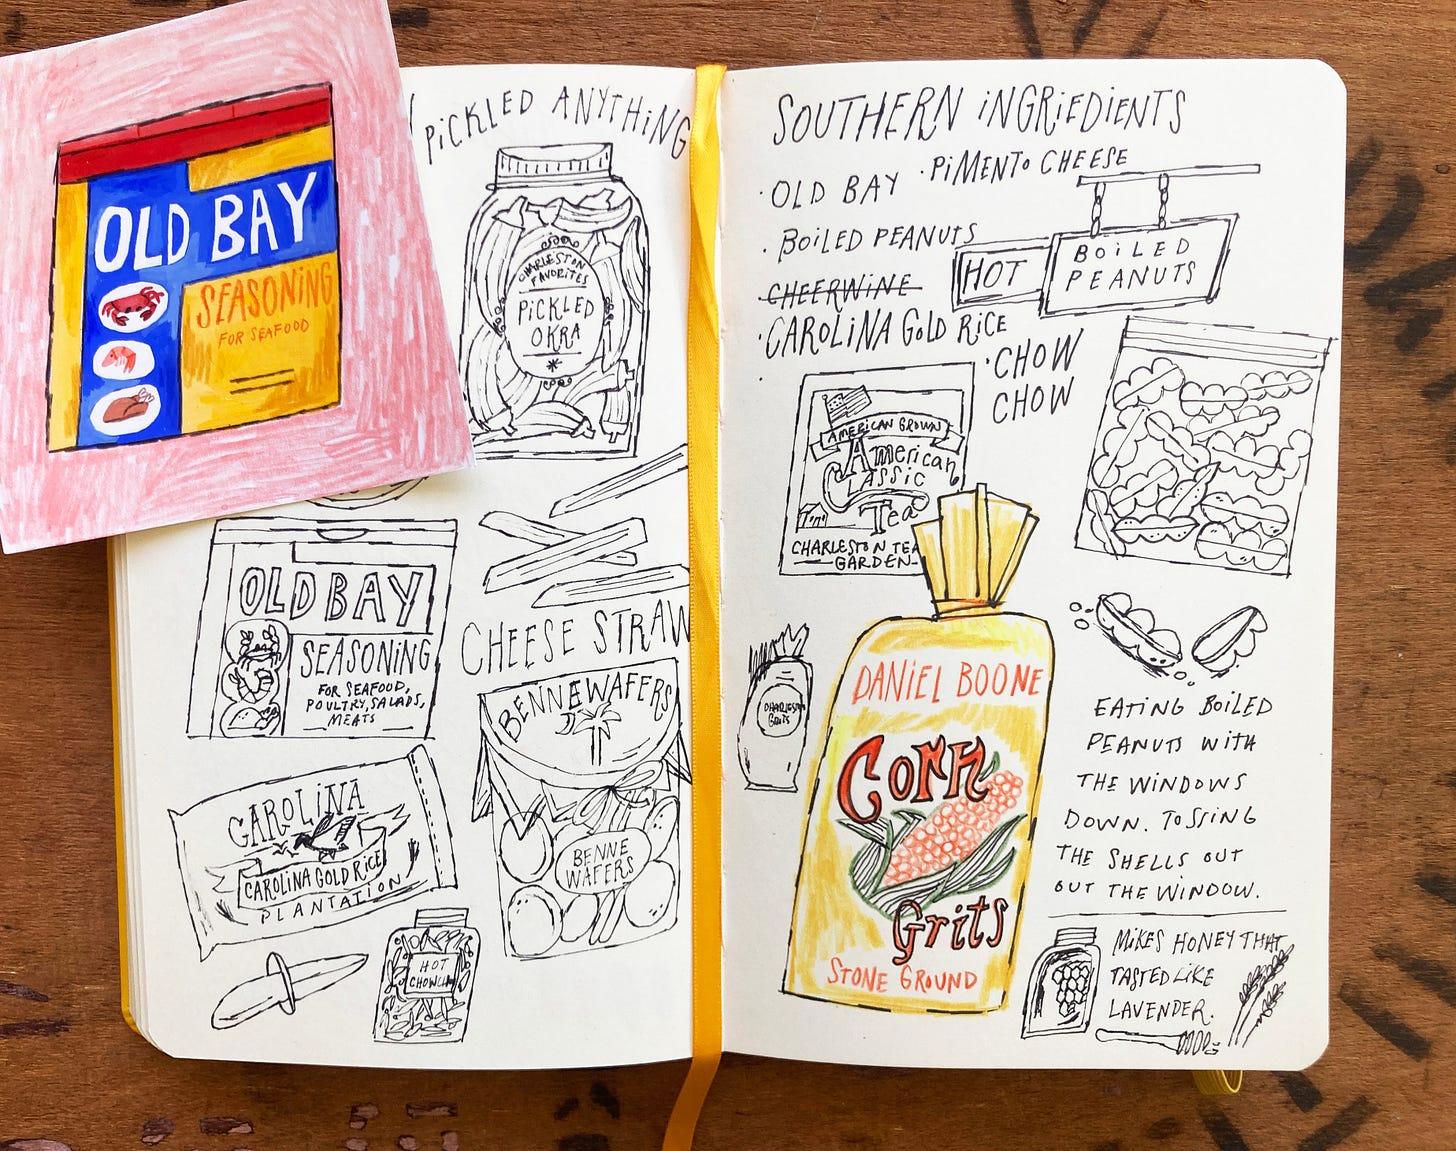 OLD BAY
SEASONING
FOR SEAFOOD
PICKLED ANYTHING
CHARLESTON
FAVORITES
PICKLED
OKRA
OLD BAY
SEASONING
FOR SEAFOOD,
POULTRY, SALADS,
MEATS
CHEESE STRAW
BENNE WAFERS
BENNE
WAFERS
CAROLINA
CAROLINA GOLD RICE
PLANTATION
HOT
SOUTHERN INGRIEDIENTS
· PIMENTO CHEESE
· OLD BAY
· BOILED PEANUTS
CHEERWINE
· CAROLINA GOLD RICE
· CHOW
CHOW
HOT
BOILED
PEANUTS
AMERICAN GROWN
American
Classic
Tea
CHARLESTON TEA
GARDEN
CHARLESTON
GRITS
DANIEL BOONE
Corn
Grits
STONE GROUND
EATING BOILED
PEANUTS WITH
THE WINDOWS
DOWN. TOSSING
THE SHELLS OUT
OUT THE WINDOW.
MIKES HONEY THAT
TASTED LIKE
LAVENDER.